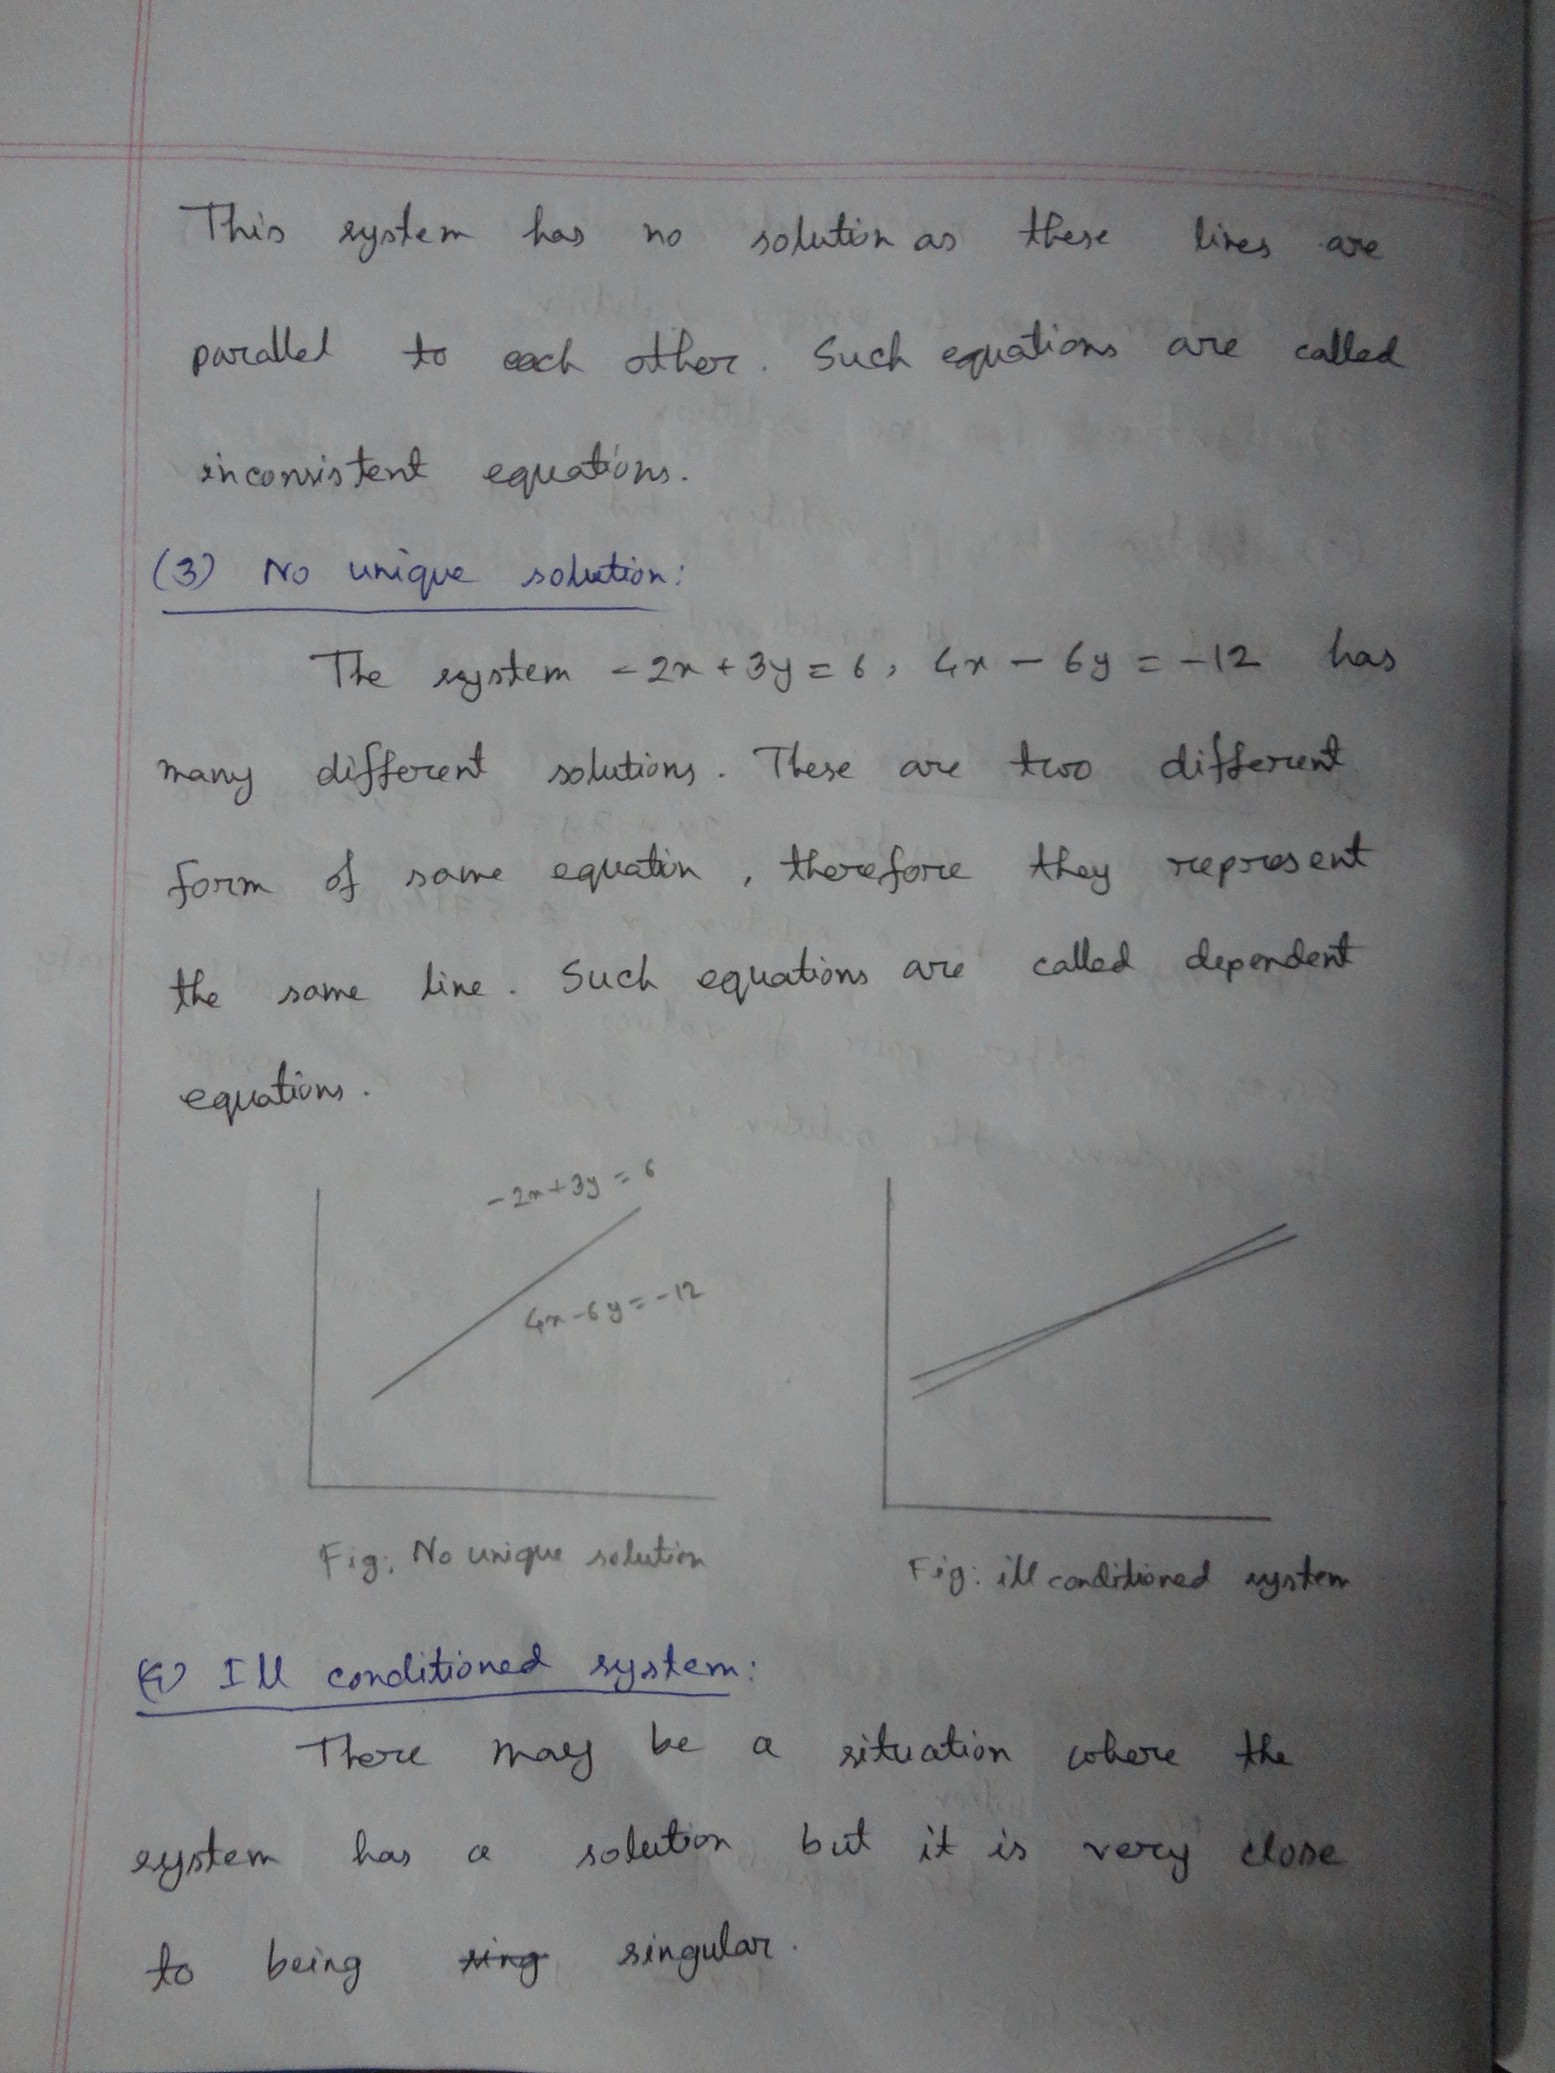 This system has no solution as these lines are
parallel to each other. Such equations are called
inconsistent equations.
(3) No unique solution:
The system -2x + 3y = 6, 4x - 6y = -12 has
many different solutions. These are two different
form of same equation, therefore they represent
the same line. Such equations are called dependent
equations.
-2x+3y = 6
4x-6y = -12
Fig: No unique solution
Fig: ill conditioned system
(4) Ill conditioned system:
There may be a situation where the
system has a solution but it is very close
to being sing singular.